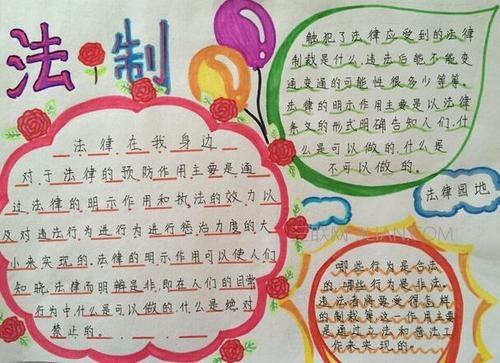 法制
法律在我身边
对于法律的预防作用主要是通
过法律的明示作用和执法的效力以
及对违法行为进行为进行惩治力度的大
小来实现的.法律的明示作用可以使人们
知晓法律而明辨是非,即在人们的日常
行为中什么是可以做的.什么是绝对
禁止的.
触犯了法律应受到的法律
制裁是什么.违法后能不能变
通变通的可能性很多少等等.
法律的明示作用主要是以法律
条文的形式明确告知人们.什
么是可以做的.什么是
不可以做的.
法律园地
哪些行为是合法
的.哪些行为是非法.
违法者将要受得怎样
的制裁等.这一作用主要
是通过立法和普法工
作来实现的.